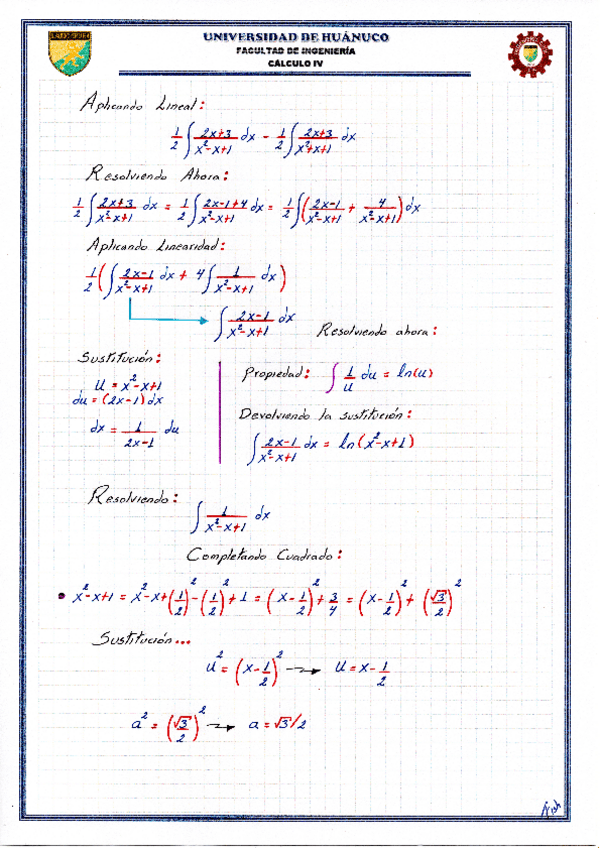 UNIVERSIDAD DE HUÁNUCO
FACULTAD DE INGENIERÍA
CÁLCULO IV
Aplicando Lineal:
1/2 ∫ (2x+3)/(x²-x+1) dx - 1/2 ∫ (2x+3)/(x²+x+1) dx
Resolviendo Ahora:
1/2 ∫ (2x+3)/(x²-x+1) dx = 1/2 ∫ (2x-1+4)/(x²-x+1) dx = 1/2 ∫ ((2x-1)/(x²-x+1) + 4/(x²-x+1)) dx
Aplicando Linearidad:
1/2 (∫ (2x-1)/(x²-x+1) dx + 4 ∫ 1/(x²-x+1) dx)
∫ (2x-1)/(x²-x+1) dx
Resolviendo ahora:
Sustitución:
u = x²-x+1
du = (2x-1) dx
dx = 1/(2x-1) du
Propiedad: ∫ 1/u du = ln(u)
Devolviendo la sustitución:
∫ (2x-1)/(x²-x+1) dx = ln(x²-x+1)
Resolviendo:
∫ 1/(x²-x+1) dx
Completando Cuadrado:
• x²-x+1 = x²-x+(1/2)²-(1/2)²+1 = (x-1/2)²+3/4 = (x-1/2)²+(√3/2)²
Sustitución...
u² = (x-1/2)² → u = x-1/2
a² = (√3/2)² → a = √3/2